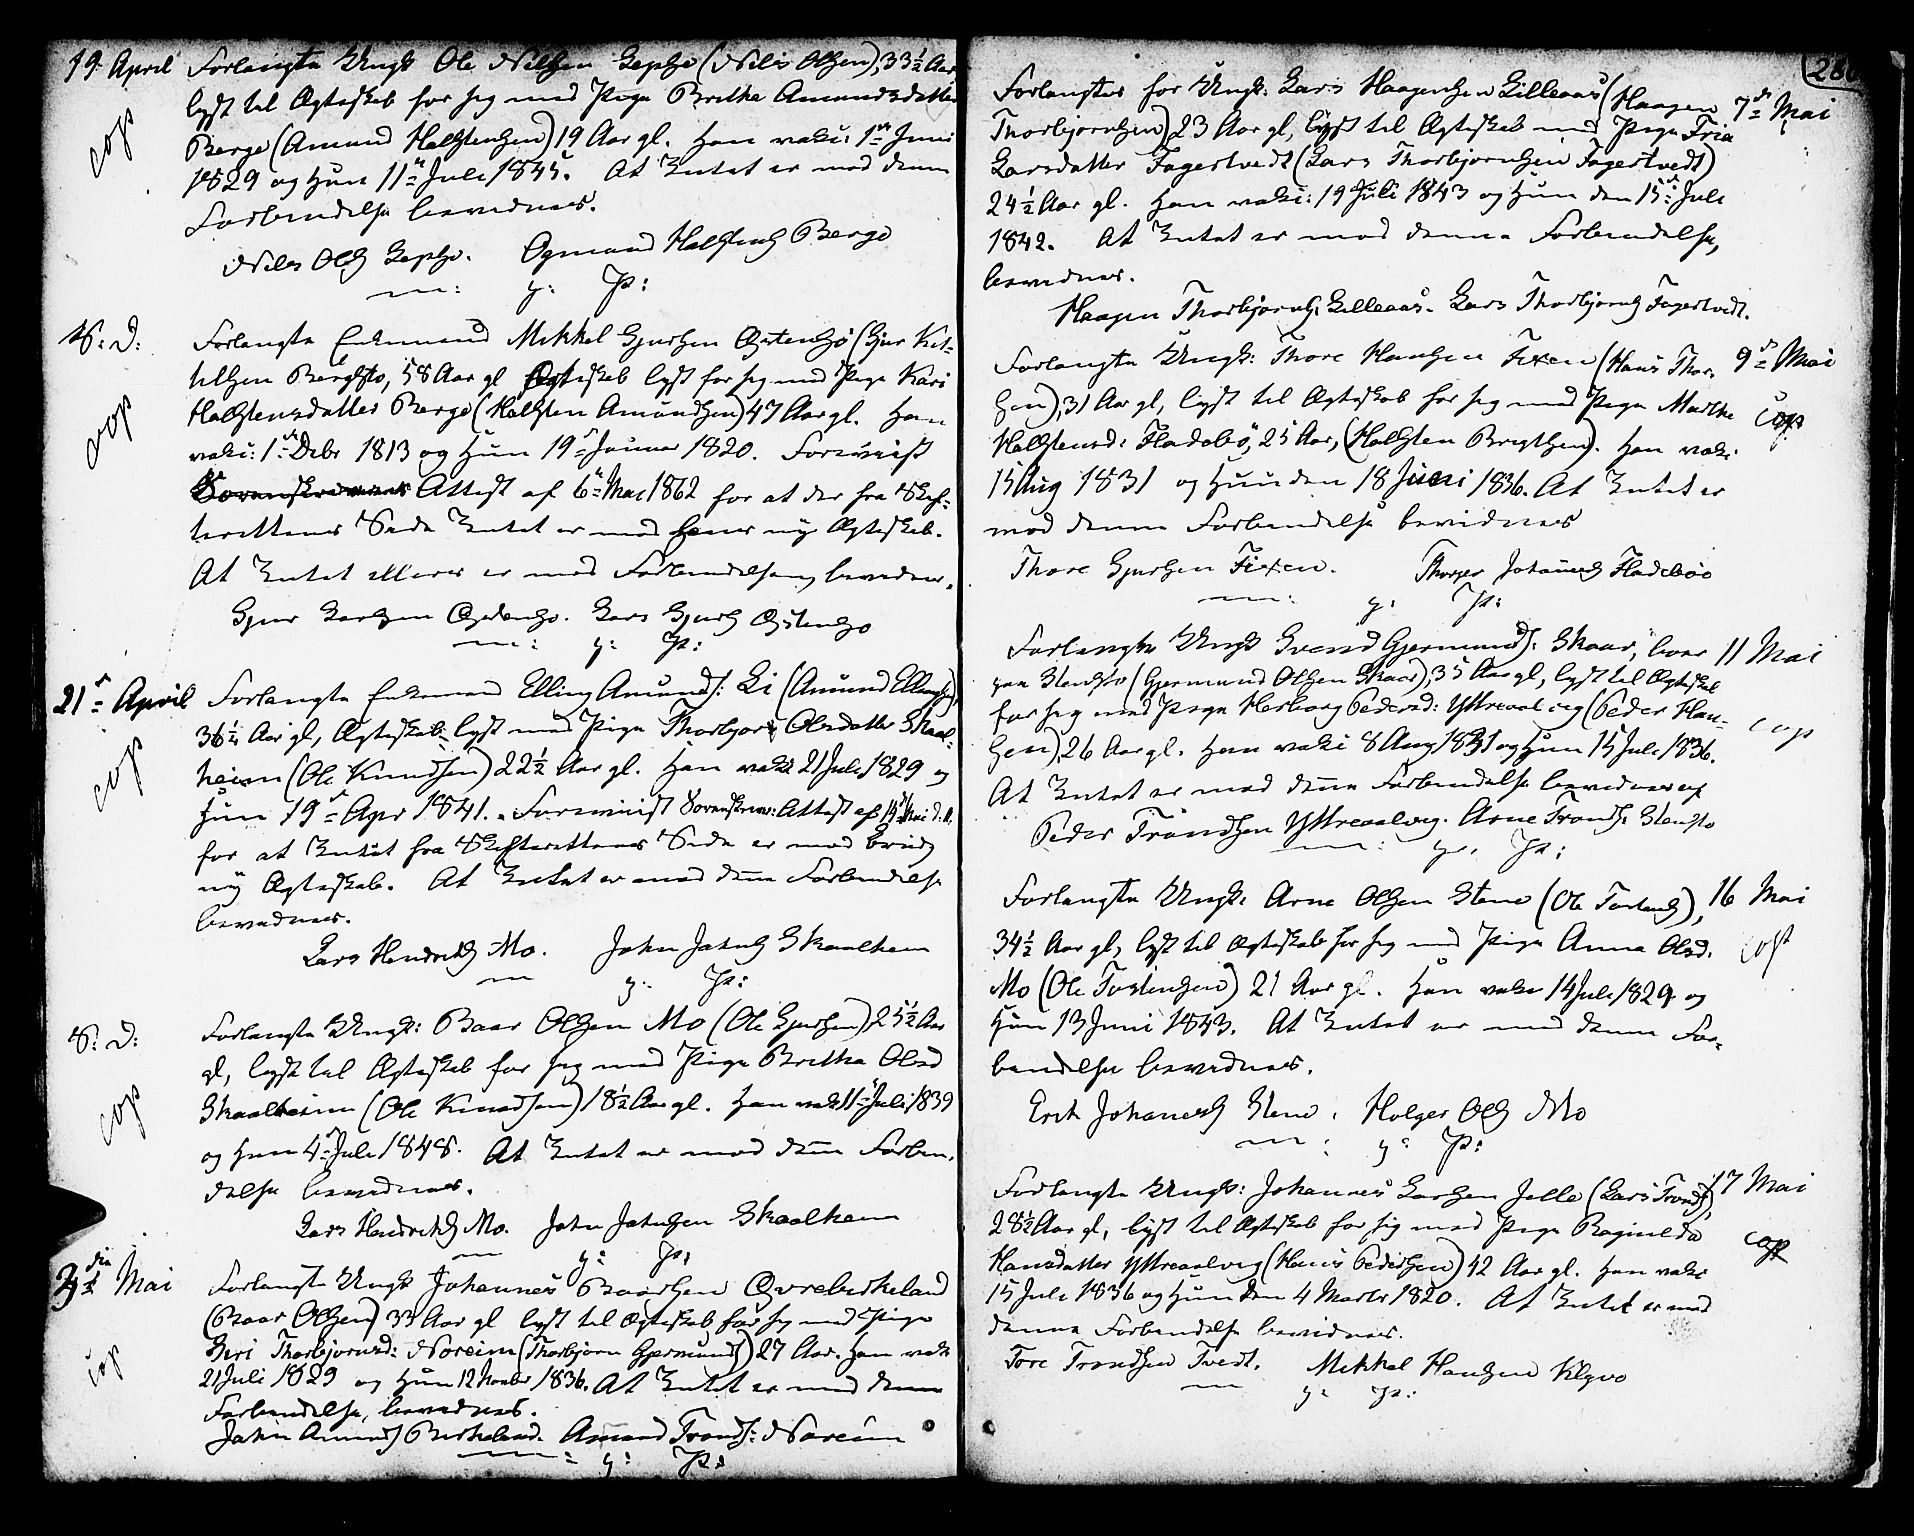 19 April Forlangte Ungk Ole Nilsen Sepho (Nils Olsen), 33½ Aar,
lyst til Ægteskab for sig med Pige Brithe Amundsdatter
cop
Berge (Amund Halstensen) 19 Aar gl. Han vaki: 1ste Juni
1829 og Hun 11te Juli 1845. At Intet er mod denne
Forbindelse bevidnes.
Nils Ols Sepho. Ogmund Halstens Berge
m: y: P:
S: D: Forlangte Enkemand Mikkel Gjursen Øystensø (Gjur Ket-
tilsen Bergsto, 58 Aar gl Ægteskab lyst for sig med Pige Kari
cop
Halstensdatter Berge (Halsten Amundsen) 47 Aar gl. Han
vaki: 1ste Debr 1813 og Hun 19de Januar 1820. Forevist
Attest af 6te Mai 1862 for at der fra Skif-
terettens Side Intet er mod hans ny Ægteskab.
At Intet ellers er mod Forbindelsen, bevidnes.
Gjur Larsen Øystensø. Lars Gjurs Øystensø
m: y: P:
21de April Forlangte Enkemand Elling Amunds: Li (Amund Ellings),
36¼ Aar gl, Ægteskab lyst med Pige Thorbjor Olsdatter Skaal-
cop
heim (Ole Knudsen) 22½ Aar gl. Han vaki 21 Juli 1829 og
Hun 19de Apr 1841. Forevist Sorenskriv: Attest af Mai d.A.
for at Intet fra Skifterettens Side er mod
ny Ægteskab. At Intet er mod denne Forbindelse
bevidnes.
Lars Hendriks Mo. John Jakobs Skaalheim
m y: P:
S: D: Forlangte Ungk: Baar Olsen Mo (Ole Gjursen) 25½ Aar
gl, lyst til Ægteskab for sig med Pige Britha Olsd
cop
Skaalheim (Ole Knudsen) 18½ Aar gl. Han vaki 11te Juli 1839
og Hun 4de Juli 1848. At Intet er mod denne Forbin-
delse bevidnes.
Lars Hendriks Mo. John Jakobsen Skaalheim
m y: P:
Mai Forlangte Ungk Johannes Baarsen Øvrebirkeland
(Baar Olsen) 33 Aar gl lyst til Ægteskab for sig med Pige
cop
Siri Thorbjornsd: Noreim (Thorbjorn Gjermunds) 27 Aar. Han vaki
21 Juli 1829 og Hun 12 Novbr 1836. At Intet er mod denne
Forbindelse, bevidnes.
John Amunds Birkeland. Amund Tronds: Noreim
m: y: P:
Forlangtes for Ungk: Lars Haagensen Lilleaas (Haagen 7de Mai
Thorbjørnsen) 23 Aar gl, lyst til Ægteskab med Pige Fria
Larsdatter Fagertvedt (Lars Thorbjornsen Fagertvedt)
24½ Aar gl. Han vaki: 19 Juli 1843 og Hun den 15de Juli
1842. At Intet er mod denne Forbindelse,
bevidnes.
Haagen Thorbjorns: Lilleaas. Lars Thorbjorns Fagertvedt.
Forlangte Ungk: Thore Hansen Fixen (Hans Thor- 9de Mai
sen), 31 Aar gl, lyst til Ægteskab for sig med Pige Marthe cop
Halstensd: Fladebö, 25 Aar, (Halsten Brigtsen). Han vaki
15 Aug 1831 og Hun den 18 Juni 1836. At Intet er
mod denne Forbindelse bevidnes
Thore Gjursen Fixen. Thorger Johannes Fladeboe
m: y: P:
Forlangte Ungk Svend Gjermunds: Skaar, boer 11 Mai
paa Stensto (Gjermund Olsen Skaar), 35 Aar gl, lyst til Ægteskab
for sig med Pige Herborg Pedersd: Yttreaalvig (Peder Han-
cop
sen), 26 Aar gl. Han vaki 8 Aug 1831 og Hun 15 Juli 1836.
At Intet er mod denne Forbindelse bevidnes af
Peder Trondsen Yttreaalvig. Arne Tronds: Stensto
m: y: P:
Forlangte Ungk: Arne Olsen Stene (Ole Torstens), 16 Mai
34½ Aar gl, lyst til Ægteskab for sig med Pige Anna Olsd. cop
Mo (Ole Torstensen) 21 Aar gl. Han vaki 14 Juli 1829 og
Hun 13 Juni 1843. At Intet er mod denne For-
bindelse bevidnes.
Erik Johannes Stene. Holger Ols Mo
m: y: P:
Forlangte Ungk: Johannes Larsen Jelle (Lars Tronds), 17 Mai
28½ Aar gl, lyst til Ægteskab for sig med Pige Raginilda
cop
Hansdatter Yttreaalvig (Hans Pedersen) 42 Aar gl. Han vaki
15 Juli 1836 og Hun den 4 Marts 1820. At Intet er mod
denne Forbindelse bevidnes.
Tore Trondsen Tvedt. Mikkel Hansen Klyve
m y: P: